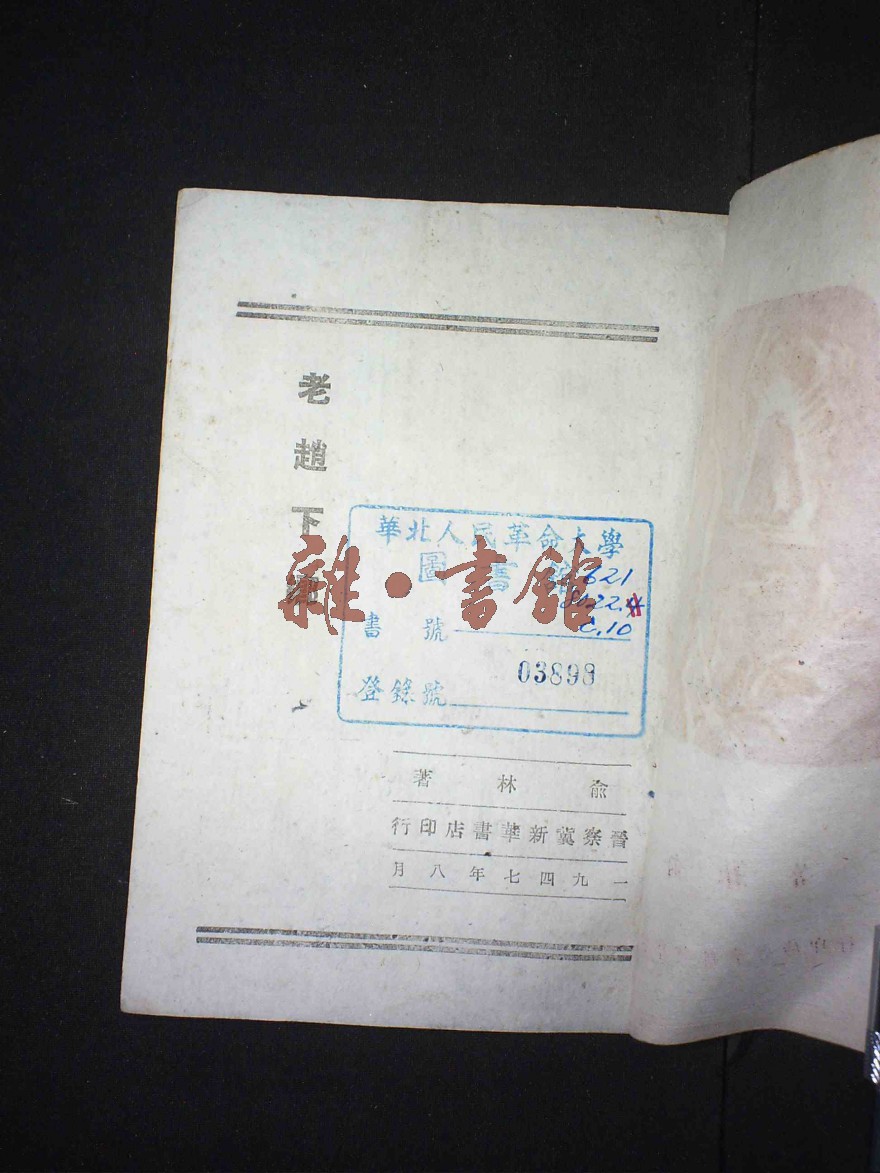 老趙下
華北人民革命大學
圖書
621
書號
C.10
03898
登錄號
雜·書館
俞林著
晉察冀新華書店印行
一九四七年八月